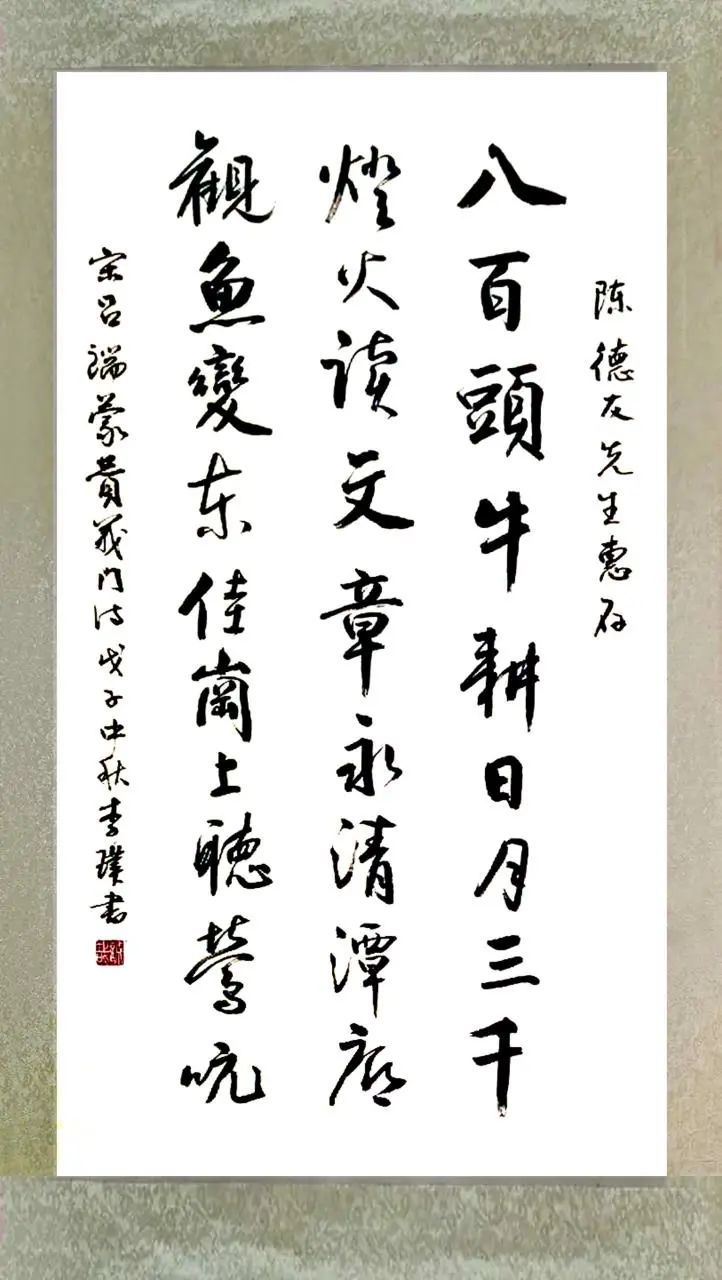 陈德友先生惠存
八百頭牛耕日月三千
燈火读文章永清潭廊
觀魚變东佳崗上聽鶯吭
宋吕端蒙贵義门诗戊子中秋李璞书